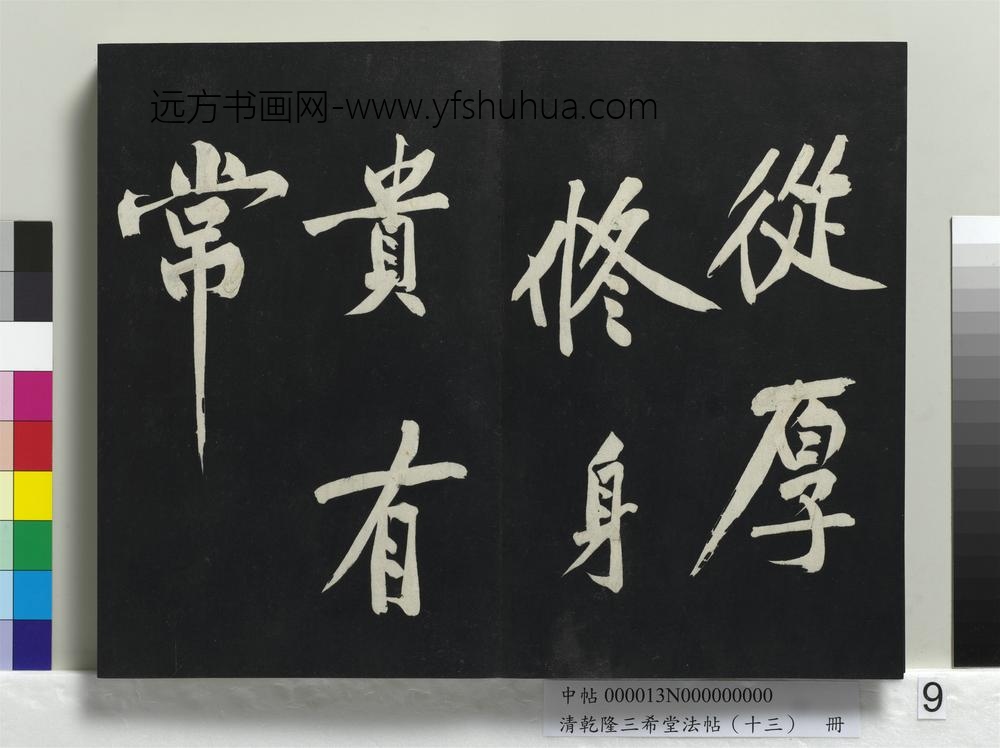 远方书画网-www.yfshuhua.com
從厚
修身
貴有
常
中帖 000013N000000000
清乾隆三希堂法帖（十三） 冊
9